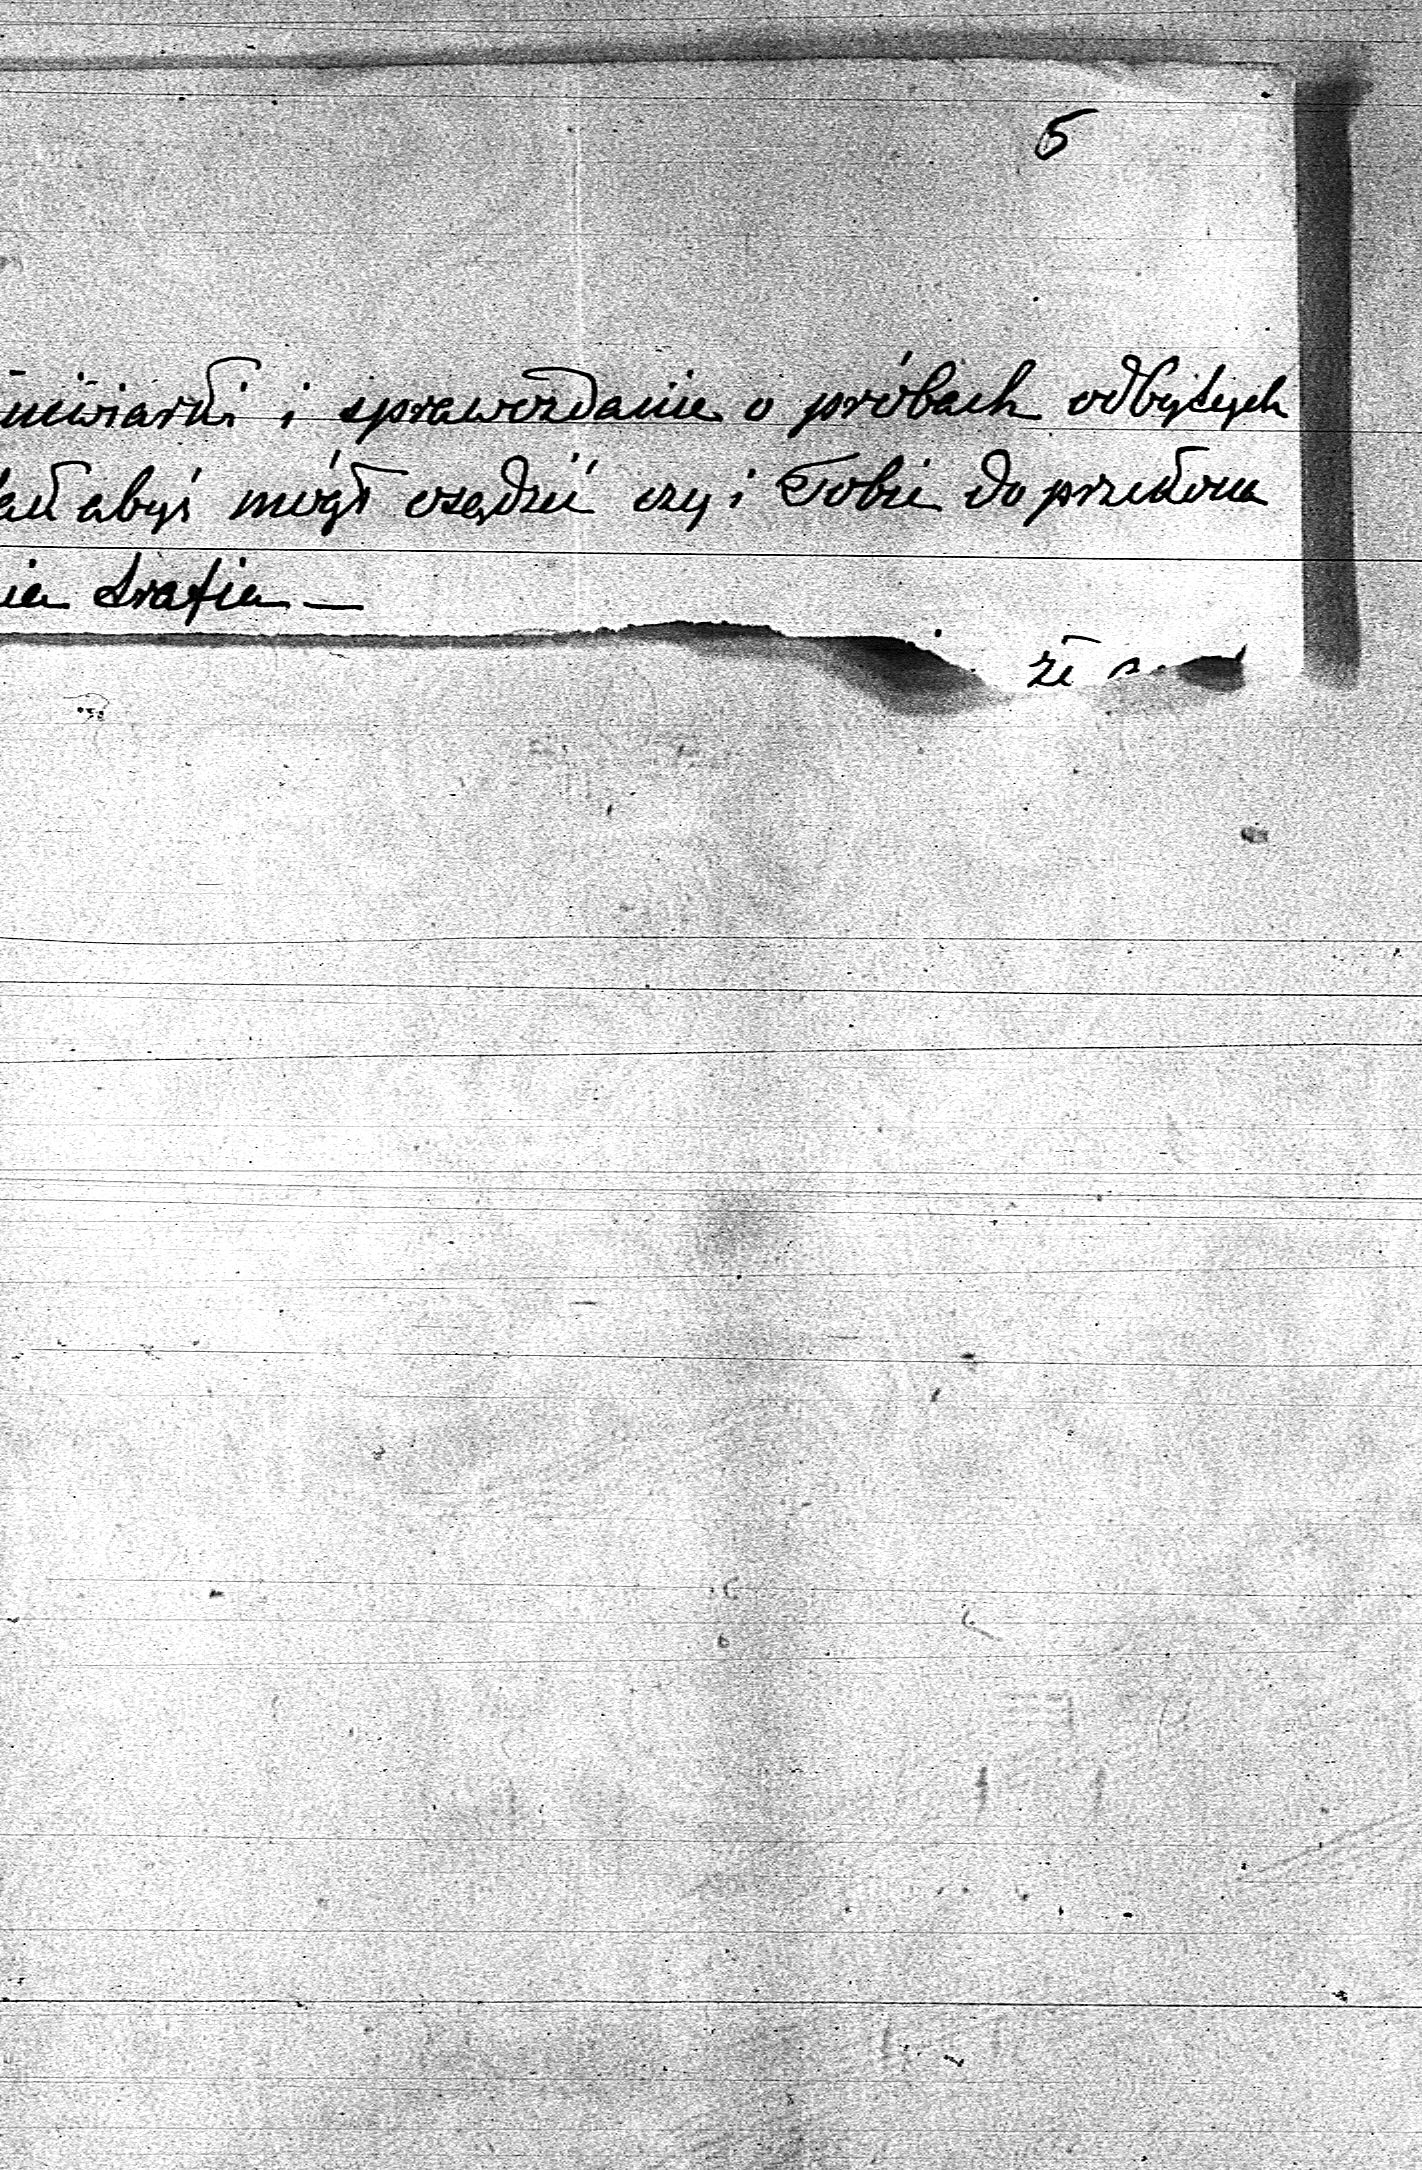 5
żniwiarki i sprawozdanie o próbach odbytych
abyś mógł osądzić czy i Tobie do przekona
nia trafia —
że